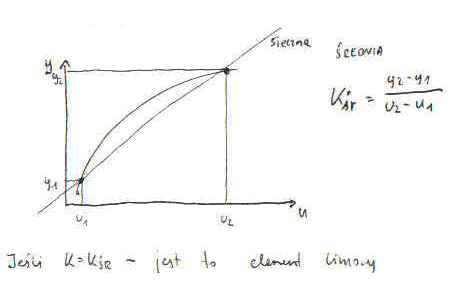 sieczna
ŚREDNIA
y
y₂
Kśr = y₂-y₁ / u₂-u₁
y₁
u₁
u₂
u
Jeśli K=Kśr - jest to element liniowy